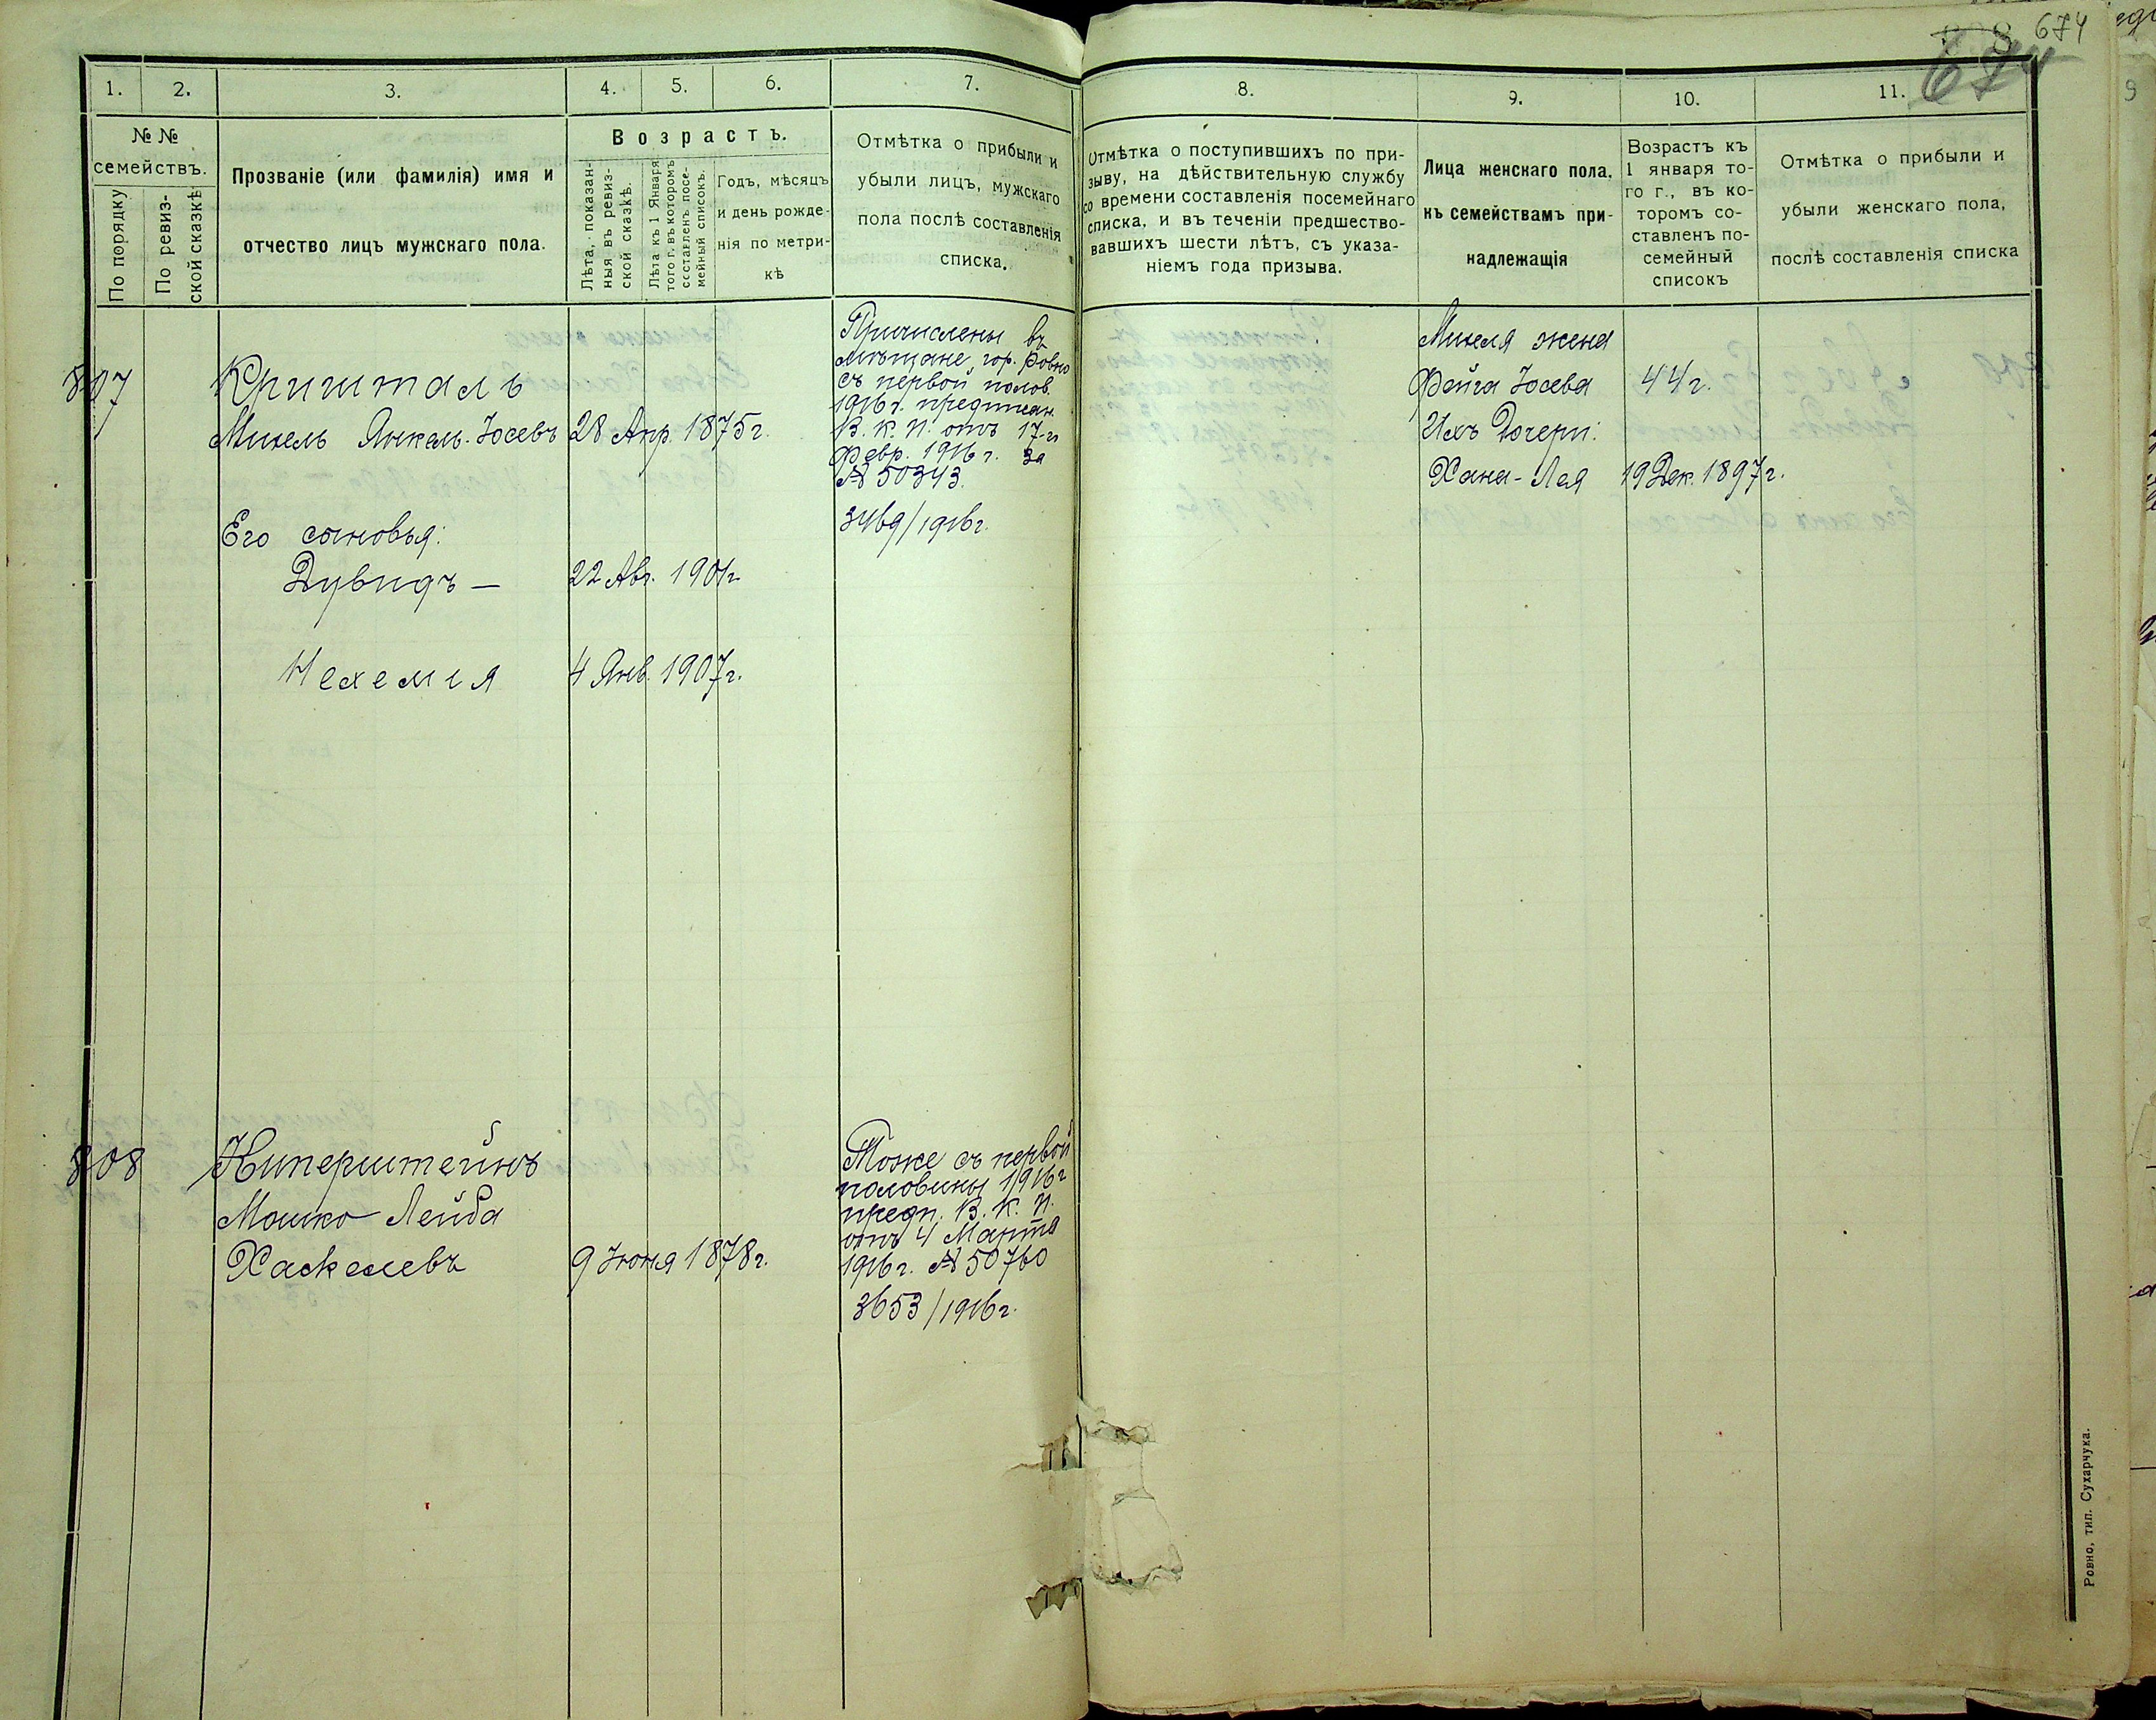 674
674
1.
2.
3.
4.
5.
6.
7.
8.
9.
10.
11.
№ №
семействъ.
По порядку
По ревиз-
ской сказкѣ
Прозваніе (или фамилія) имя и
отчество лицъ мужскаго пола.
Возрастъ.
Лѣта, показан-
ныя въ ревиз-
ской сказкѣ.
Лѣта къ 1 Января
того г. въ которомъ
составленъ посе-
мейный списокъ.
Годъ, мѣсяцъ
и день рожде-
нія по метри-
кѣ
Отмѣтка о прибыли и
убыли лицъ, мужскаго
пола послѣ составленія
списка.
Отмѣтка о поступившихъ по при-
зыву, на дѣйствительную службу
со времени составленія посемейнаго
списка, и въ теченіи предшество-
вавшихъ шести лѣтъ, съ указа-
ніемъ года призыва.
Лица женскаго пола,
къ семействамъ при-
надлежащія
Возрастъ къ
1 января то-
го г., въ ко-
торомъ со-
ставленъ по-
семейный
списокъ
Отмѣтка о прибыли и
убыли женскаго пола,
послѣ составленія списка
807
Кришталь
Михель Янкель-Іосевъ 28 Апр. 1875 г.
Его сыновья:
Дувидъ — 22 Авг. 1901 г.
Нехемія 4 Янв. 1907 г.
Причислены въ
мѣщане гор. Ровно
съ первой полов.
1916 г. предписан.
В. К. П. отъ 17-го
Февр. 1916 г. за
№ 50343.
3469/1916 г.
Михеля жена
Фейга Іосева 44 г.
Ихъ Дочери:
Хана-Лея 19 Дек. 1897 г.
808
Киперштейнъ
Мошко Лейба
Хаскелевъ 9 Іюня 1878 г.
Тоже съ первой
половины 1916 г
предп. В. К. П.
отъ 4 Марта
1916 г. № 50760
3653/1916 г.
Ровно, тип. Сухарчука.